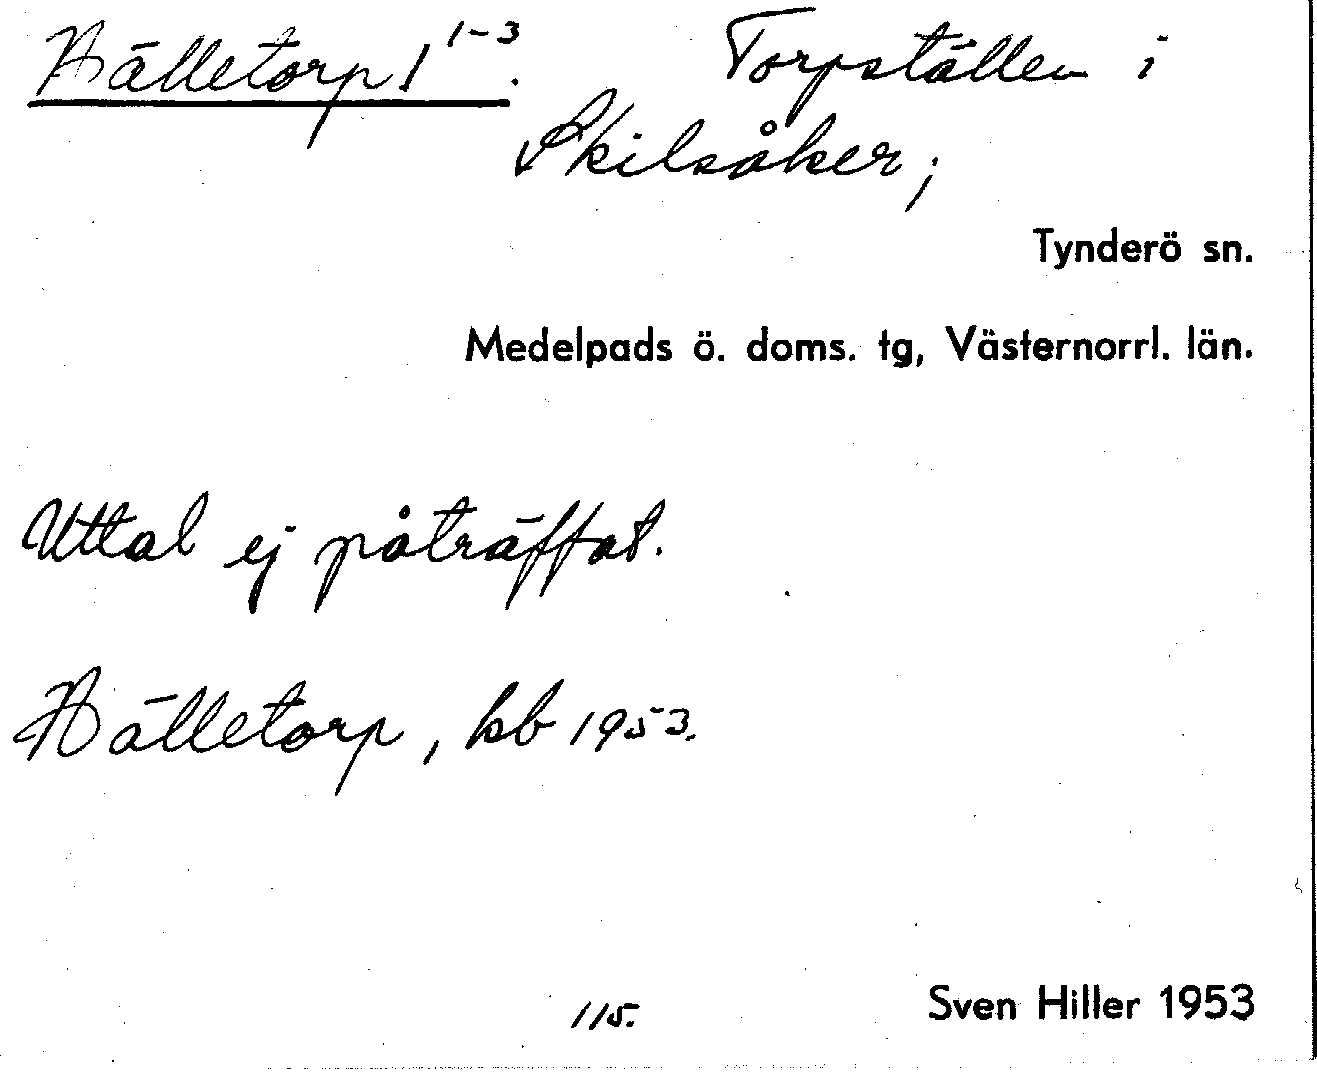 Hälletorp 1 1-3. Torpställen i
Skilsåker;
Tynderö sn.
Medelpads ö. doms. tg, Västernorrl. län.
Uttal ej påträffat.
Hälletorp, kb 1953.
115.
Sven Hiller 1953